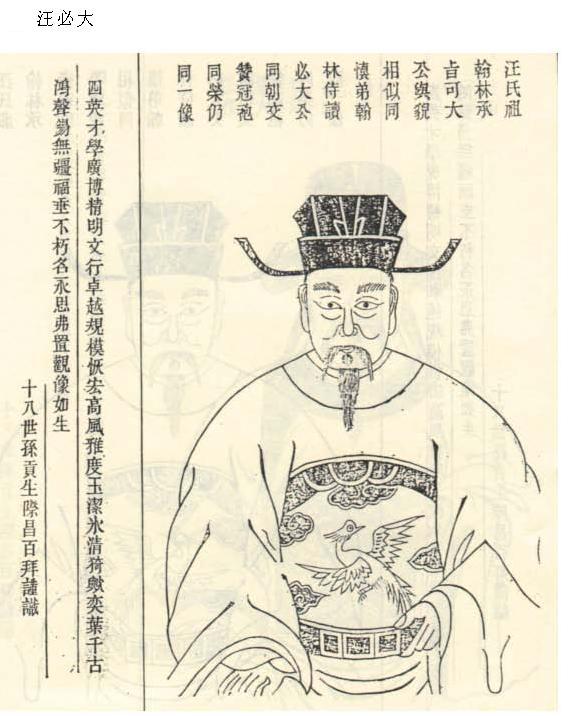 汪必大
汪氏祖
翰林承
旨可大
公與貌
相似同
懷弟翰
林侍讀
必大公
同朝文
贊冠袍
同榮仍
同一像
四英才學廣博精明文行卓越規模恢宏高風雅度玉潔氷清猗歟奕葉千古
鴻聲勷無疆福垂不朽名永思弗置觀像如生
十八世孫貢生際昌百拜謹識